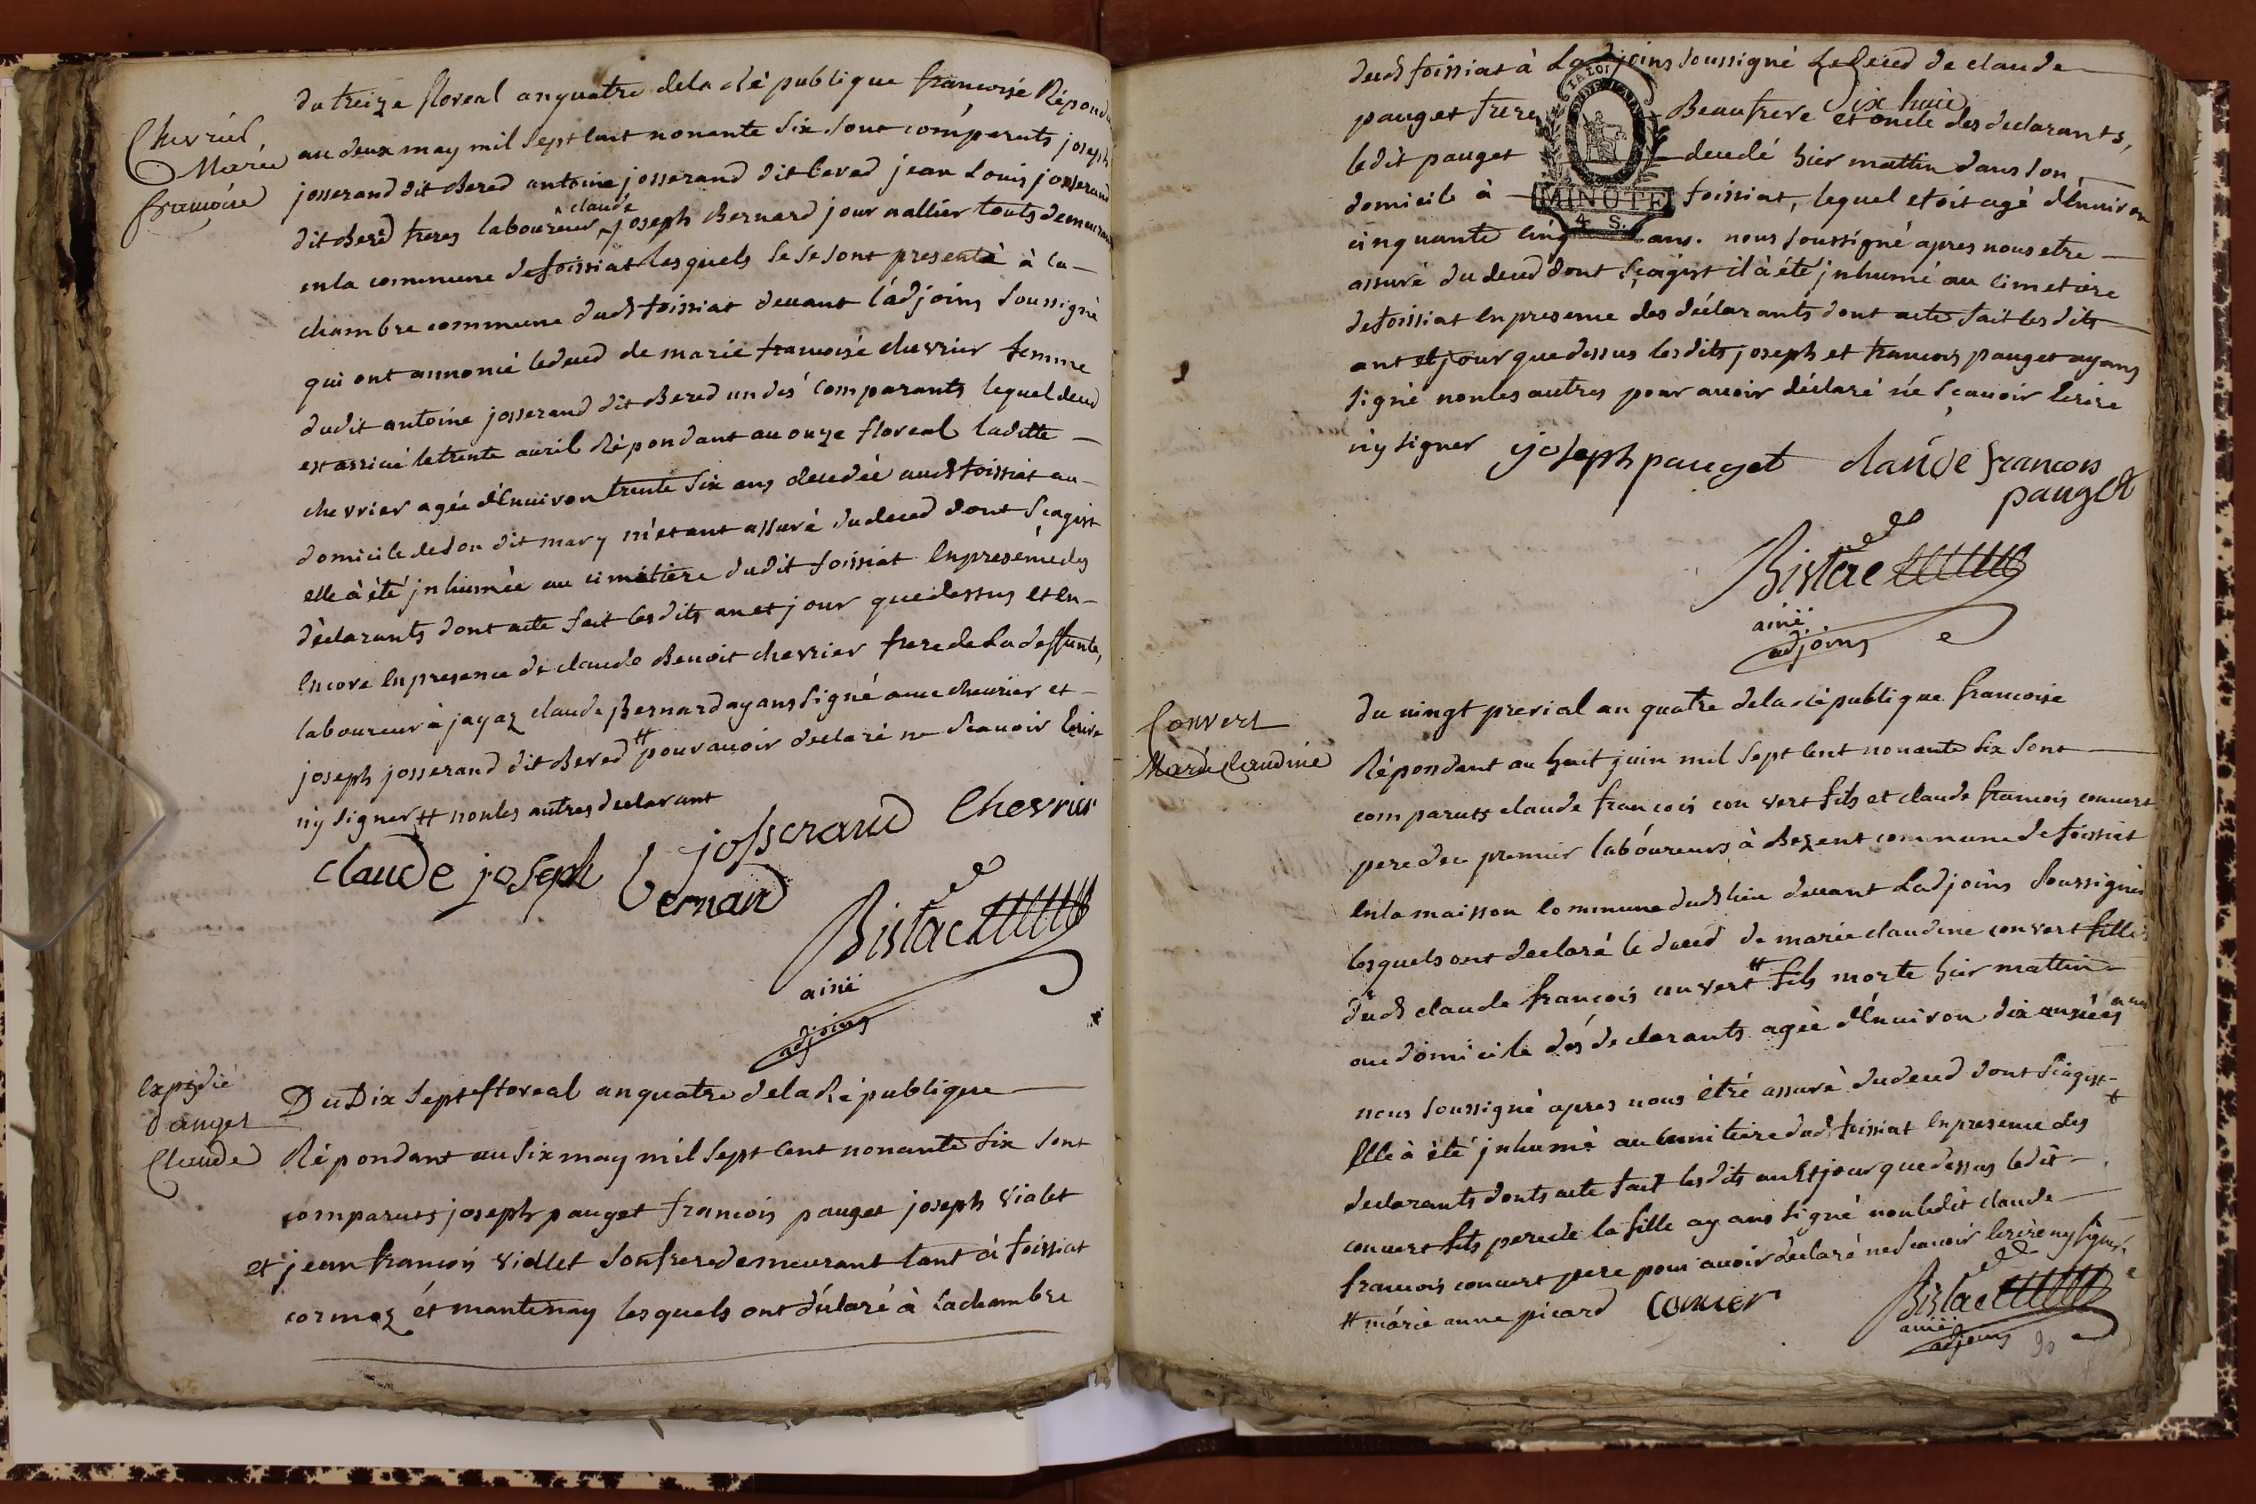 Chevrier
Marie
françoise
du treize floreal an quatre de la république françoise Répond
au deux may mil sept cent nonante six sont comparuts joseph
josserand dit Bered antoine josserand dit bered jean Louis josserand
dit Bered freres laboureur claude joseph Bernard journallier touts demeurant
en la commune de foissiat lesquels se sesont presenté à la
chambre commune dudt foissiat devant l'adjoins soussigné
qui ont annoncé le deced de marie françoise chevrier femme
dudit antoine josserand dit Bered un des comparants lequel deced
est arrivé le trente avril Répondant au onze floreal laditte
chevrier agée d'Environ trente six ans decedée audt foissiat au
domicile de son dit mary m'etant assuré du deced dont s'çagist
elle à été jnhumée au cimetiere dudit foissiat En presence des
déclarants dont acte fait les dits an et jour que dessus et en
Encore En presence de claude Benoit chevrier frere de la deffunte,
laboureur à jayaz claude Bernard ayans signé avec chevrier et
joseph josserand dit Bered # pour avoir declaré ne scavoir Ecrire
ny signer # non les autres declarant
josserand Chevrier
claude joseph bernard
Bistac
ainé
adjoins
Expédié
Pauget
Claude
Du Dix Sept floreal an quatre de la République
Répondant au six may mil sept cent nonante six sont
comparuts joseph pauget francois pauget joseph vialet
et jean francois vialet son frere demeurant tant à foissiat
cormoz ét mantenay lesquels ont déclaré à la chambre
dudt foissiat à Ladjoins soussigné Le deced de claude
pauget frere Beaufrere Dix huit et oncle des declarants,
ledit pauget decedé hier mattin dans son
domicile à foissiat, lequel etoit agé d'Environ
cinquante cinq ans. nous soussigné apres nous etre
LA LOI
MINUTE
4 S.
assuré du deced dont s'çagist il à été jnhumé au cimetiere
de foissiat En presence des déclarants dont acte fait les dits
ant et jour que dessus les dits joseph et francois pauget ayans
signé non les autres pour avoir déclaré ne sçavoir Ecrire
ny signer joseph pauget claude francois
pauget
Bistac
ainé
adjoins
Convert
Marie Claudine
du vingt prerial an quatre de la république francoise
Répondant au huit juin mil sept cent nonante six sont
comparuts claude francois convert fils et claude francois convert
pere du premier laboureurs à Bezent commune de foissiat
En la maison commune dudt lieu devant Ladjoins soussigné
lesquels ont declaré le deced de marie claudine convert fille
dudt claude françois convert # fils morte hier mattin
au domicile dés declarants agée d'Environ dix années
nous soussigné apres nous étré assuré du deced dont s'çagist
Elle à été jnhumé au cimitiere dudt foissiat En presence des
declarants donts acte fait les dits an et jour que dessus ledit
convert fils pere de la fille ayans signé non ledit claude
francois convert pere pour avoir declaré ne scavoir Ecrire ny signer
# et marie anne picard conver
Bistac
ainé
adjoins
90